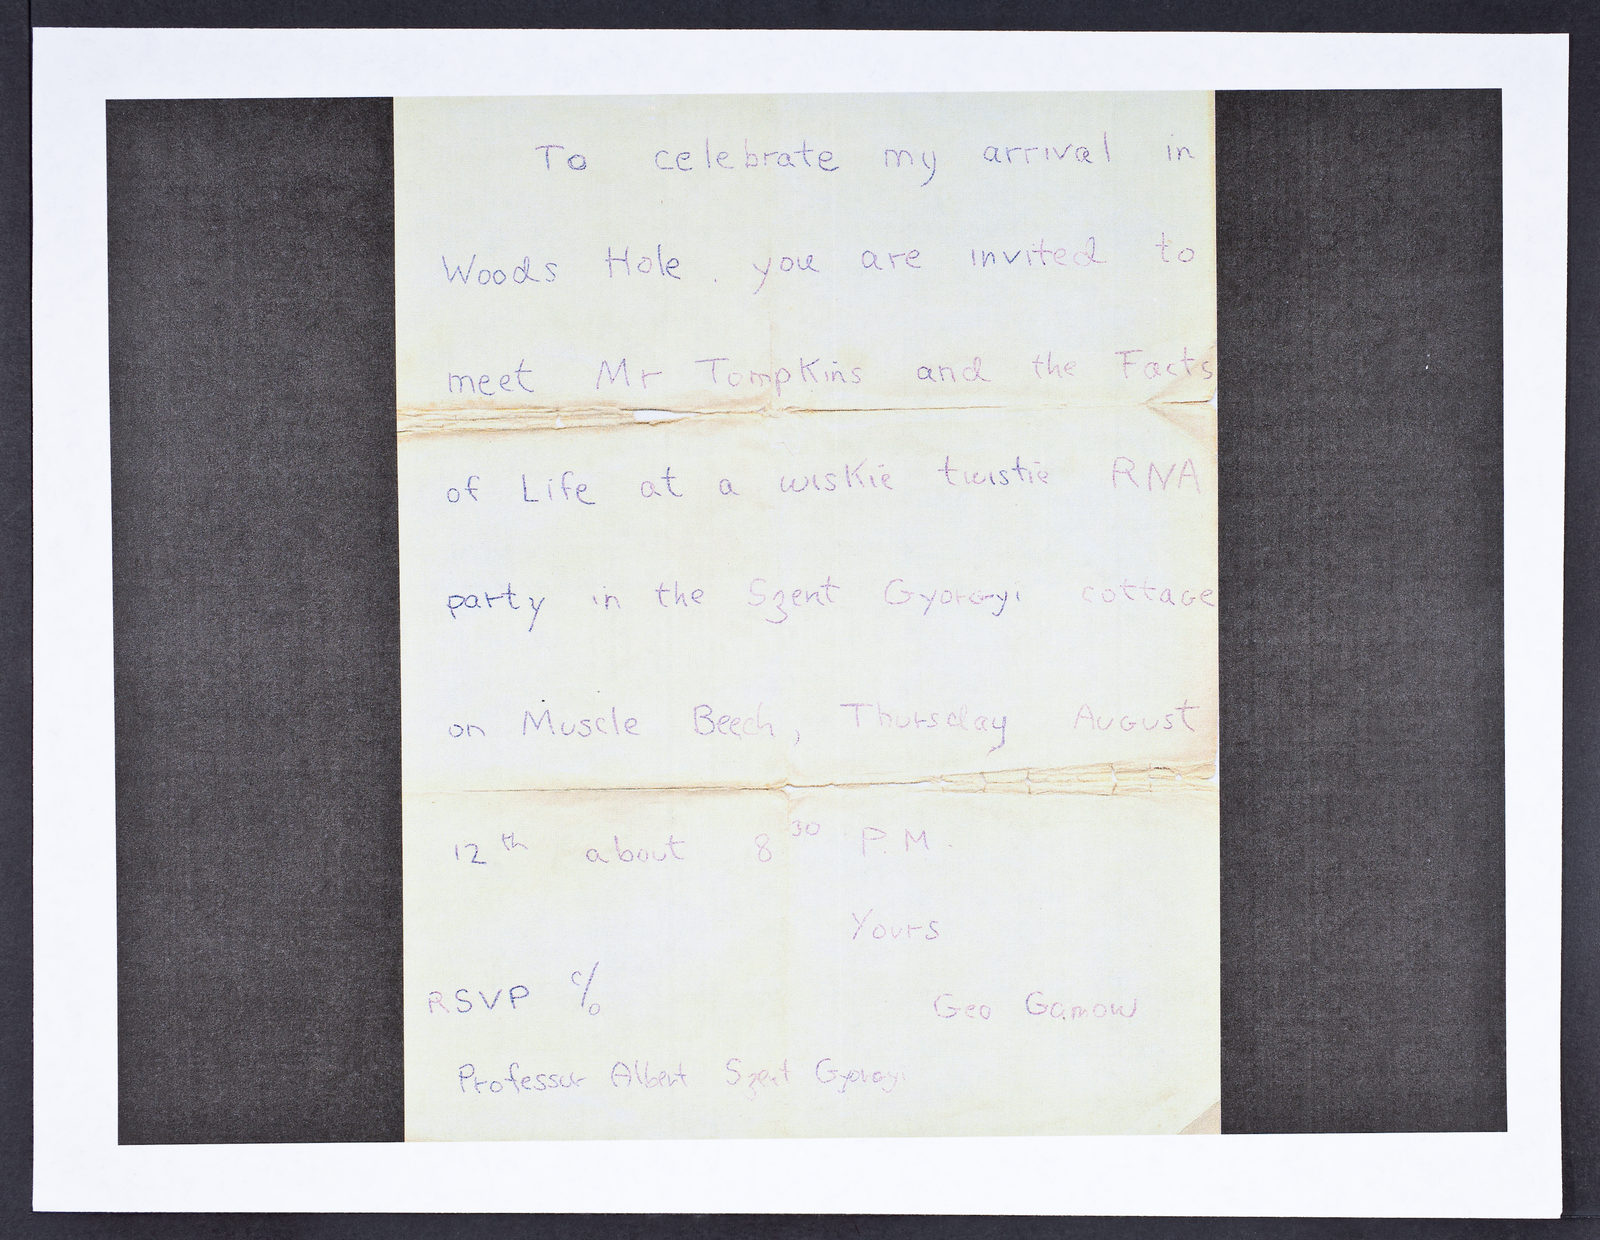 To celebrate my arrival in
Woods Hole. you are invited to
meet Mr Tompkins and the Facts
of Life at a wiskie twistie RNA
party in the Szent Gyorgyi cottage
on Muscle Beech, Thursday August
12th about 8 30 P.M.
Yours
RSVP c/o
Geo Gamow
Professor Albert Szent Gyorgyi